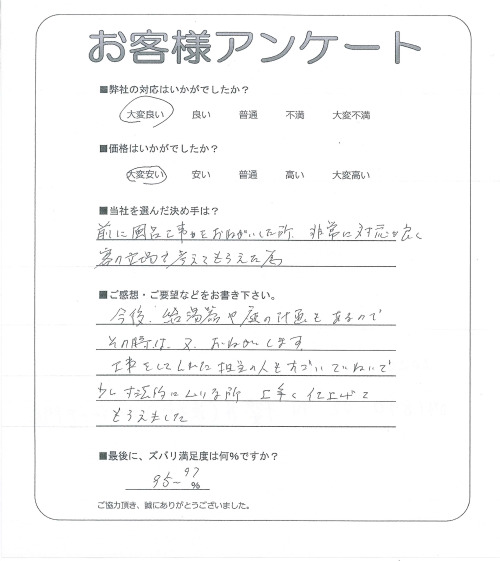 お客様アンケート
■弊社の対応はいかがでしたか？
大変良い　良い　普通　不満　大変不満
■価格はいかがでしたか？
大変安い　安い　普通　高い　大変高い
■当社を選んだ決め手は？
前に風呂工事をおねがいした所、非常に対応が良く
客の立場で考えてもらえた為
■ご感想・ご要望などをお書き下さい。
今後、給湯器や庭の計画もあるので
その時は、又、おねがいします
工事をしてくれた担当の人もすごいていねいで
少し寸法的にムリな所 上手く仕上げて
もらえました
■最後に、ズバリ満足度は何%ですか？
95~97%
ご協力頂き、誠にありがとうございました。